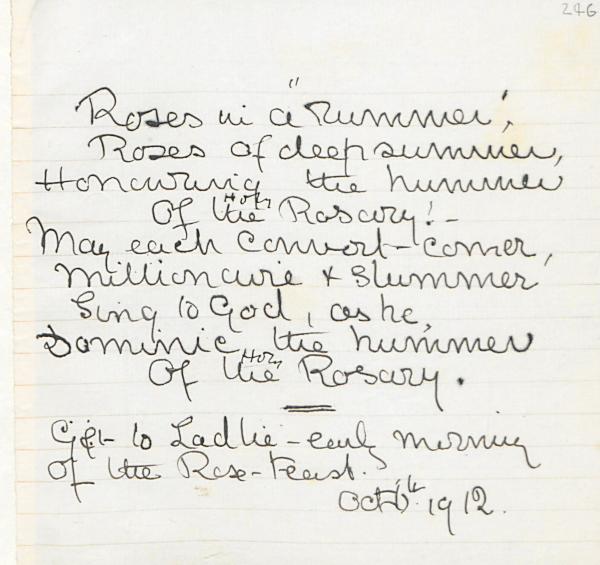 246
Roses in a "Rummer",
Roses of deep summer,
Honouring the hummer
Of the Holy Rosary! -
May each convert-comer,
Millionaire & Slummer
Sing to God, as he,
Dominic, the hummer
Of the Holy Rosary.
Gift to Laddie - early morning
Of the Rose-Feast.
1912.